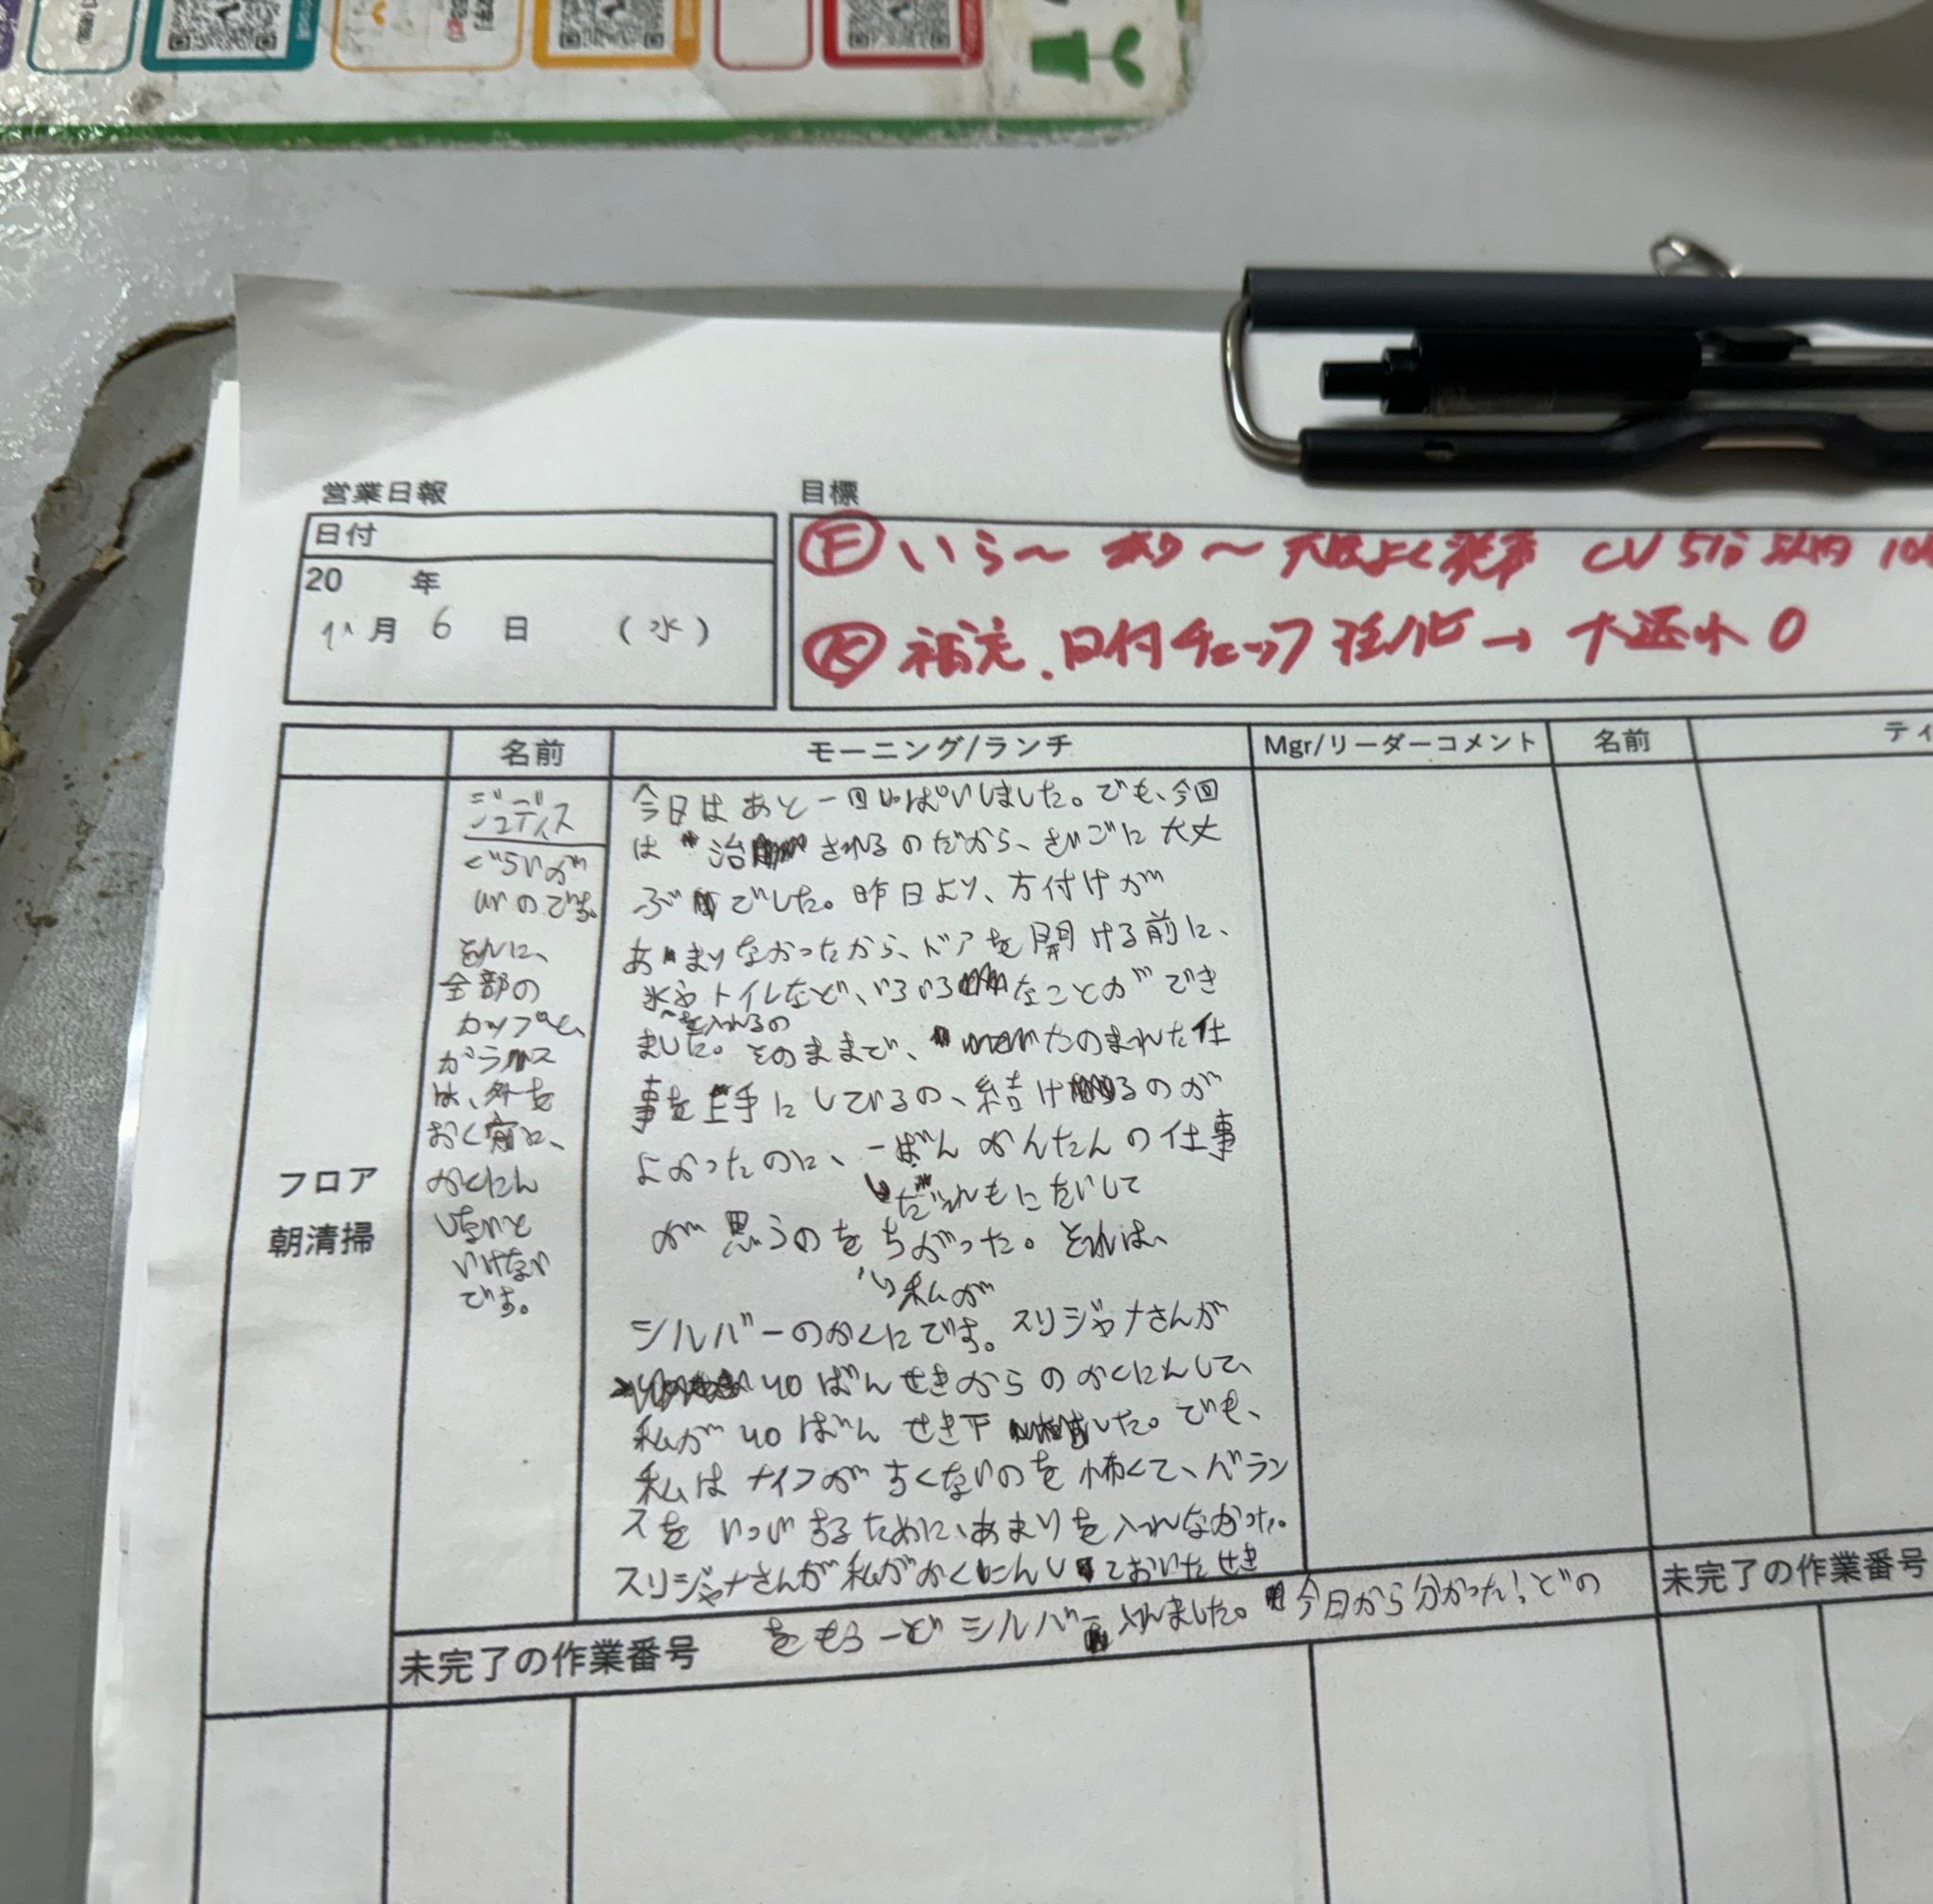 営業日報
目標
日付
20 年
月 6 日 (水)
Ⓕ いら〜 あり〜 元気よく発声 CV 5分以内
Ⓚ 補充、日付チェック → 0
名前
モーニング/ランチ
Mgr/リーダーコメント
名前
ティ
フロア
朝清掃
ジュディス
ぐらいが
いのです。
それに、
全部の
カップと、
ガラス
は、外を
おく前に、
かくにん
しないと
いけない
です。
今日はあと一回しっぱいしました。でも、今回
は 治されるのだから、さいごに大丈
ぶでした。昨日より、方付けが
あまりなかったから、ドアを開ける前に、
氷や トイレなど、いろいろなことができ
を入れるの
ました。そのままで、たのまれた仕
事を上手にしているの、結けるのが
よかったのに、一ばんかんたんの仕事
だれもにたいして
が思うのをちがった。それは、
私が
シルバーのかくにです。スリジャナさんが
40ばんせきからのかくにんして、
私が40ばんせき下した。でも、
私はナイフがすくないのを怖くて、バラン
スをいっいするために、あまりを入れなかった。
スリジャナさんが私がかくにんしておいたせき
をもう一どシルバー入れました。今日から分かった!どの
未完了の作業番号
未完了の作業番号